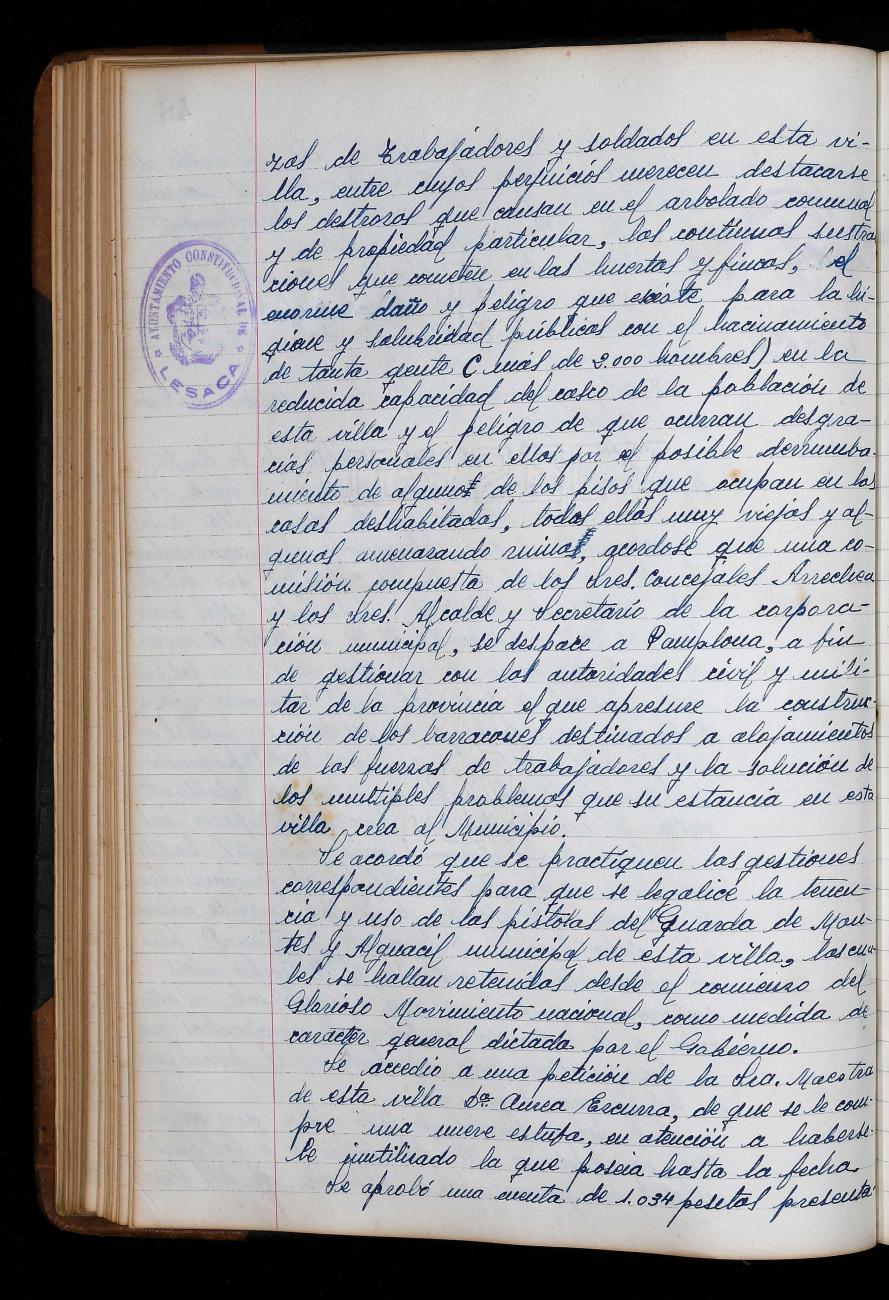 zas de trabajadores y soldados en esta vi-
lla, entre cuyos perjuicios merecen destacarse
los destrozos que causan en el arbolado comunal
y de propiedad particular, las continuas sustra
ciones que cometen en las huertas y fincas, el
enorme daño y peligro que existe para la hi-
giene y salubridad públicas con el hacinamiento
de tanta gente (más de 2.000 hombres) en la
reducida capacidad del casco de la población de
esta villa y el peligro de que ocurran desgra-
cias personales en ellos por el posible derrumba-
miento de algunos de los pisos que ocupan en las
casas deshabitadas, todas ellas muy viejas y al-
gunas amenazando ruinas, acordose que una co-
misión compuesta de los sres. Concejales Arrechea
y los sres. Alcalde y Secretario de la corpora-
ción municipal, se despace a Pamplona, a fin
de gestionar con las autoridades civil y mili-
tar de la provincia el que apresure la construc-
ción de los barracones destinados a alojamientos
de las fuerzas de trabajadores y la solución de
los multiples problemas que su estancia en esta
villa crea al Municipio.
Se acordó que se practiquen las gestiones
correspondientes para que se legalice la tenen-
cia y uso de las pistolas del Guarda de Mon-
tes y Alguacil municipal de esta villa, las cua-
les se hallan retenidas desde el comienzo del
Glorioso Movimiento nacional, como medida de
carácter general dictada por el Gobierno.
Se accedio a una petición de la Sra. Maestra
de esta villa Dª. Aurea Ezcurra, de que se le com-
pre una nueve estufa, en atención a haberse-
le inutilizado la que poseia hasta la fecha.
Se aprobó una cuenta de 1.034 pesetas presenta-
AYUNTAMIENTO CONSTITUCIONAL DE
LESACA